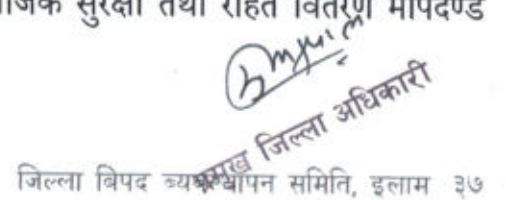 सुरक्षा तथा राहत वितरण मापदण्ड
प्रमुख जिल्ला अधिकारी
जिल्ला विपद व्यवस्थापन समिति, इलाम ३७